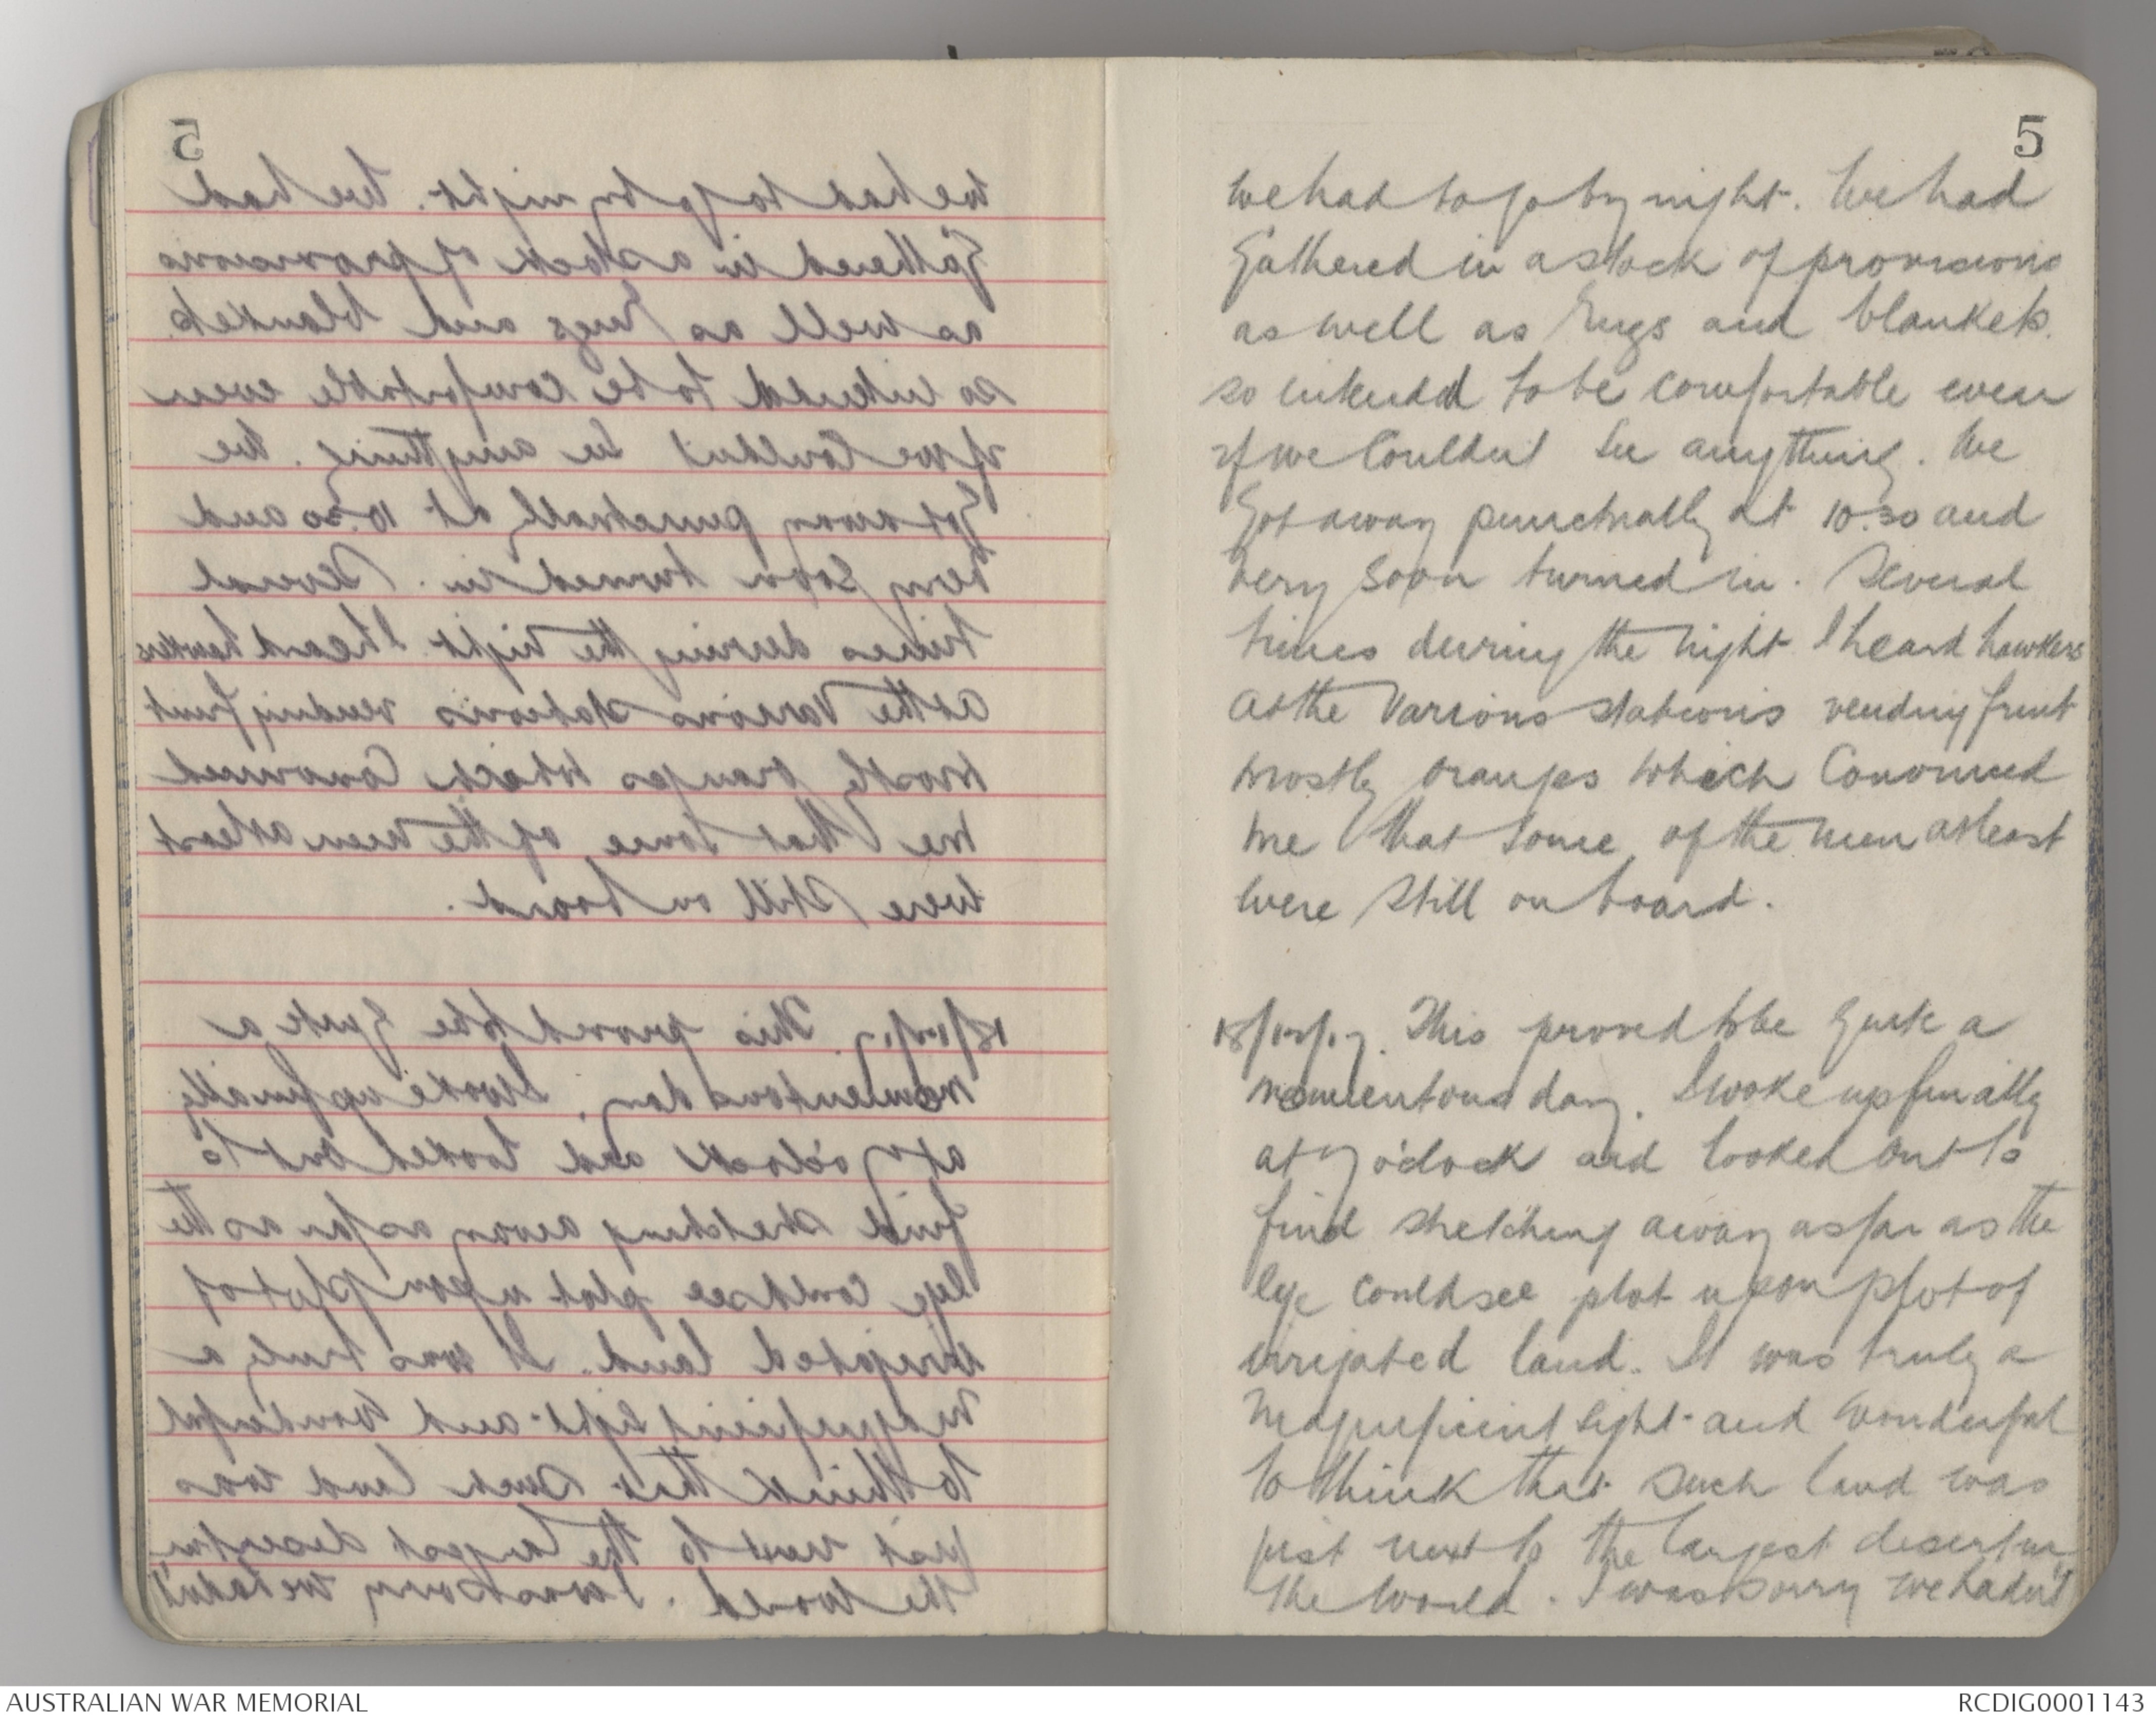 5
we had to go by night. We had
Gathered in a stock of provisions
as well as Rugs and blankets.
so intended to be comfortable even
if we Couldn't See anything. We
Got away punctually at 10.30 and
Very Soon turned in. Several
times during the night I heard hawkers
at the Various stations vending fruit
mostly oranges which Convinced
me that Some of the men at least
were Still on board.
18/12/17. This proved to be Quite a
momentous day. I woke up finally
at 7 o'clock and looked out to
find stretching away as far as the
eye could see plot upon plot of
irrigated land. It was truly a
Magnificient Sight and Wonderful
to think that such land was
just next to the largest desert in
the World. I was sorry we hadn't
AUSTRALIAN WAR MEMORIAL
RCDIG0001143